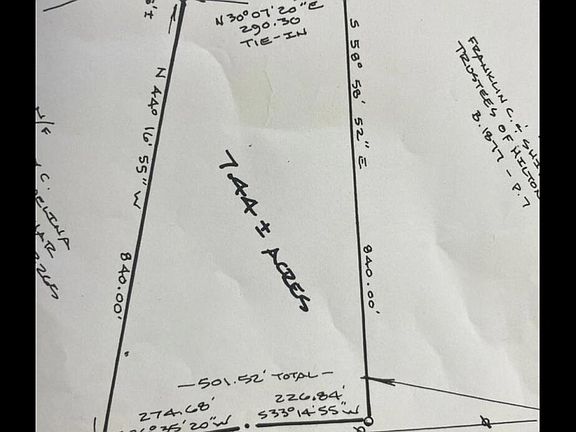 N30°07'20"E
290.30
TIE-IN
N 44° 16' 55" W
840.00'
S 58° 58' 52" E
840.00'
7.44 ± ACRES
FRANKLIN C. &
TRUSTEES OF HILTON
B. 1877 - P. 7
N/F
-501.52' TOTAL-
274.68'
35'20"W
226.84'
S33°14'55"W